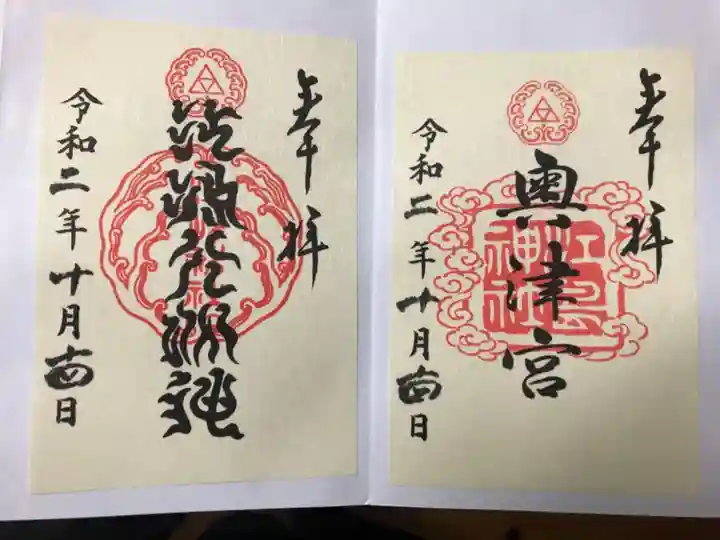 奉拝
奥津宮
江島神社
令和二年十月日
奉拝
江嶋大明神
令和二年十月日